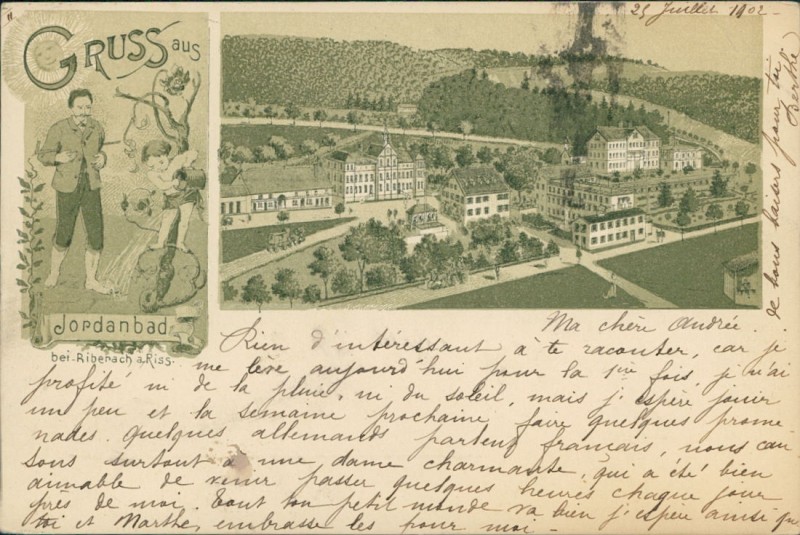 GRUSS aus
Jordanbad
bei Biberach a/Riss.
25 Juillet 1902
Ma chère Andrée.
Rien d'intéressant à te raconter, car je
me lève aujourd'hui pour la 1re fois, je n'ai
profité ni de la pluie, ni du soleil, mais j'espère jouir
un peu et la semaine prochaine faire quelques prome
nades. Quelques allemands parlent français, nous cau
sons surtout à une dame charmante, qui a été bien
aimable de venir passer quelques heures chaque jour
près de moi. Tout ton petit monde va bien j'espère ainsi que
toi et Marthe, embrasse les pour moi -
de bons baisers pour toi
Berthe